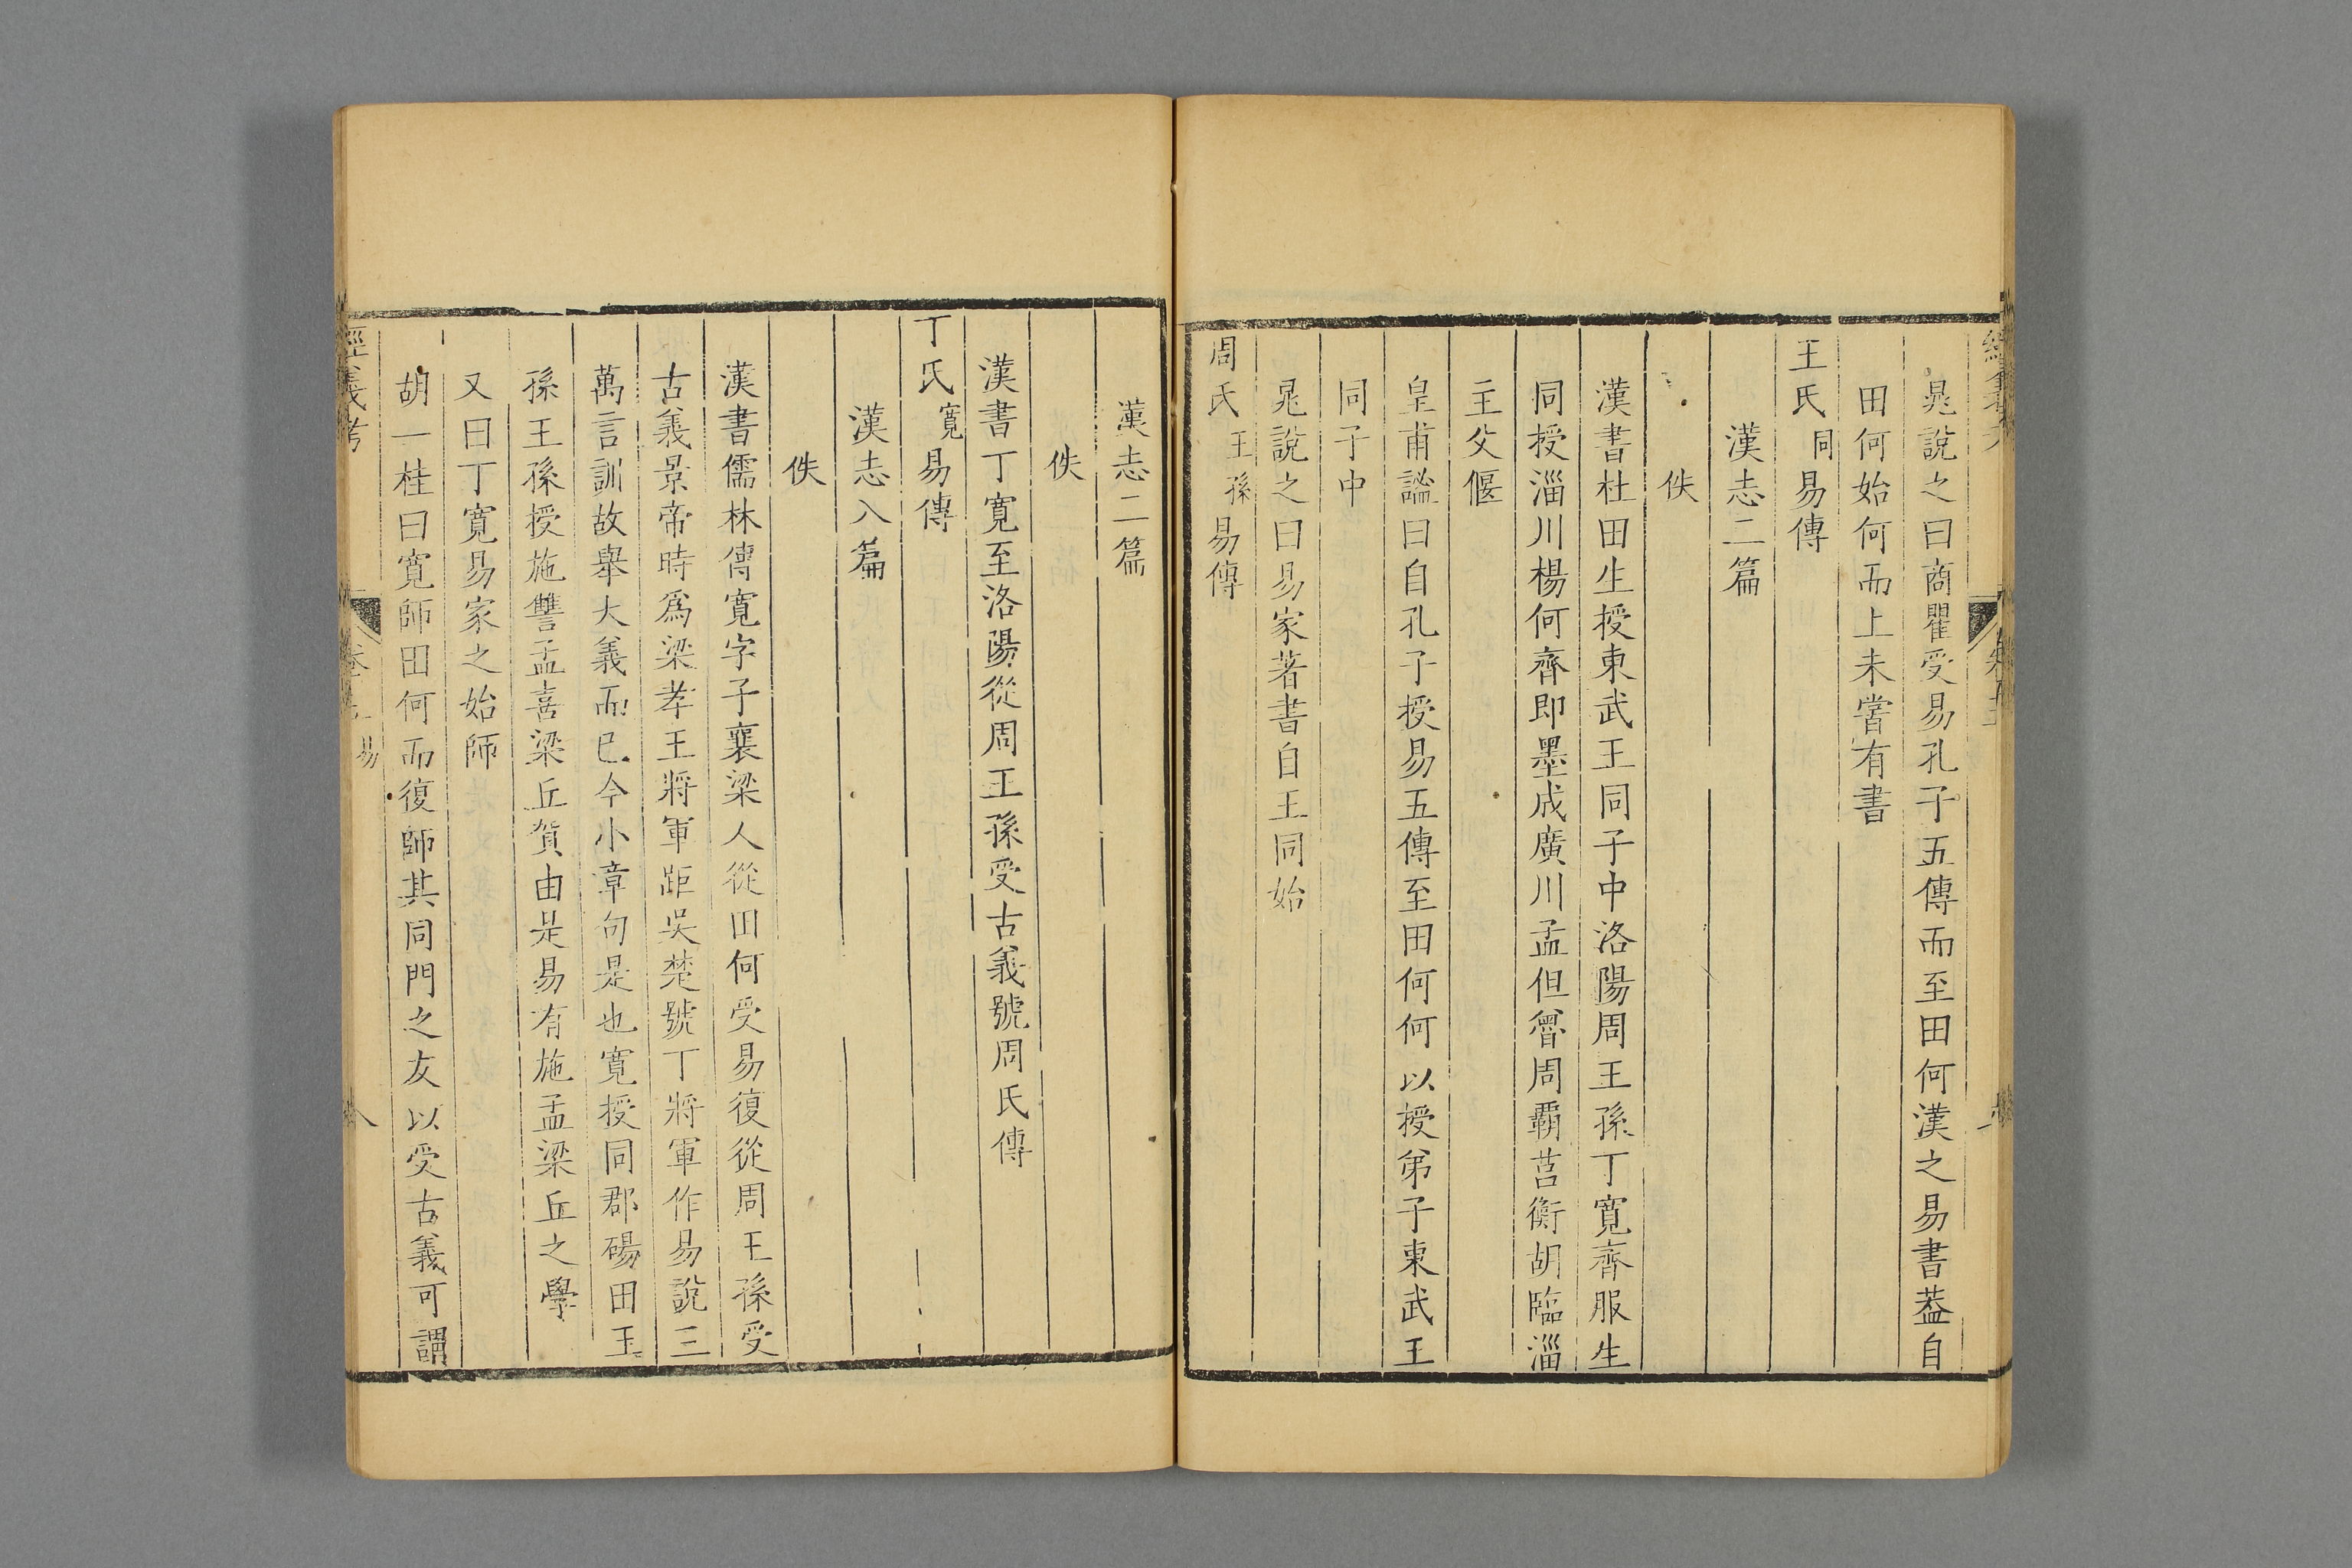 晁說之曰商瞿受易孔子五傳而至田何漢之易書葢自
田何始何而上未嘗有書
王氏同易傳
漢志二篇
佚
漢書杜田生授東武王同子中洛陽周王孫丁寬齊服生
同授淄川楊何齊即墨成廣川孟但魯周霸莒衡胡臨淄
主父偃
皇甫謐曰自孔子授易五傳至田何何以授弟子東武王
同子中
晁說之曰易家著書自王同始
周氏王孫易傳
漢志二篇
佚
漢書丁寬至洛陽從周王孫受古義號周氏傳
丁氏寬易傳
漢志八篇
佚
漢書儒林傳寬字子襄梁人從田何受易復從周王孫受
古義景帝時爲梁孝王將軍距吳楚號丁將軍作易說三
萬言訓故舉大義而已今小章句是也寬授同郡碭田王
孫王孫授施讐孟喜梁丘賀由是易有施孟梁丘之學
又曰丁寬易家之始師
胡一桂曰寬師田何而復師其同門之友以受古義可謂
經義考 卷五 易 八